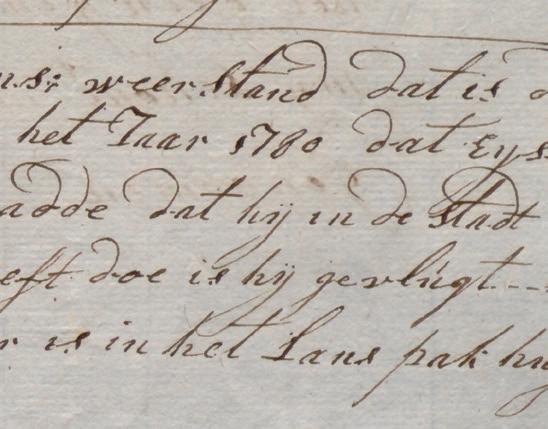 ns: weerstand dat is d
het Jaar 1780 dat Eys
adde dat hij in de stadt
eft doe is hij gevlúgt---
r is in het Lans pak hu